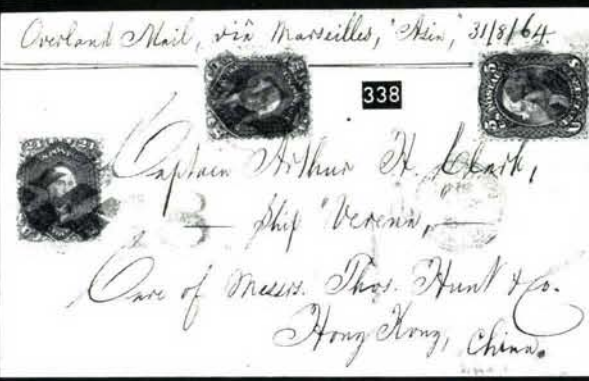 Overland Mail, viâ Marseilles, "Asia," 31/8/64.
338
Captain Arthur H. Clark,
— Ship "Verena," —
Care of Messrs. Thos. Hunt & Co.
Hong Kong, China.